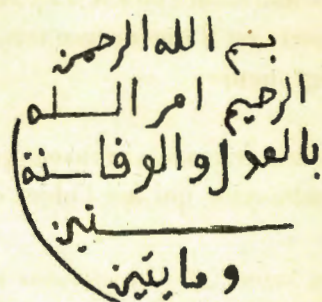 بسم الله الرحمن
الرحيم امر الله
بالعدل والوفا سنة
ستين
ومايتين